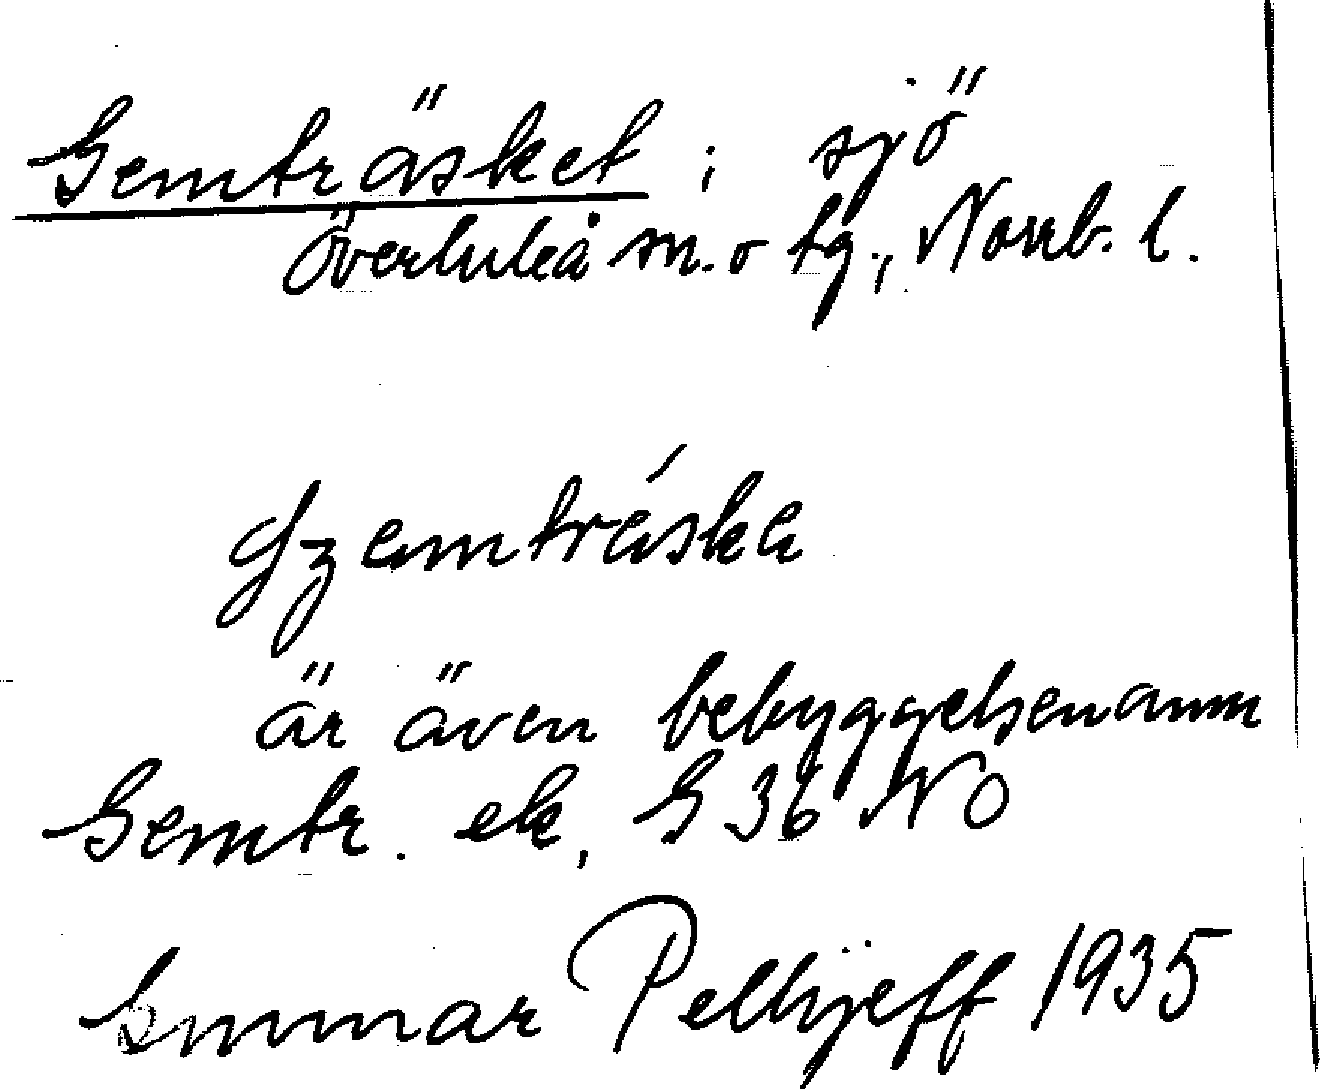 Gemträsket ; sjö
Överluleå sn. o tg., Norrb. l.
är även bebyggelsenamn
Gemtr. ek, G 36 NO
Gunnar Pellijeff 1935